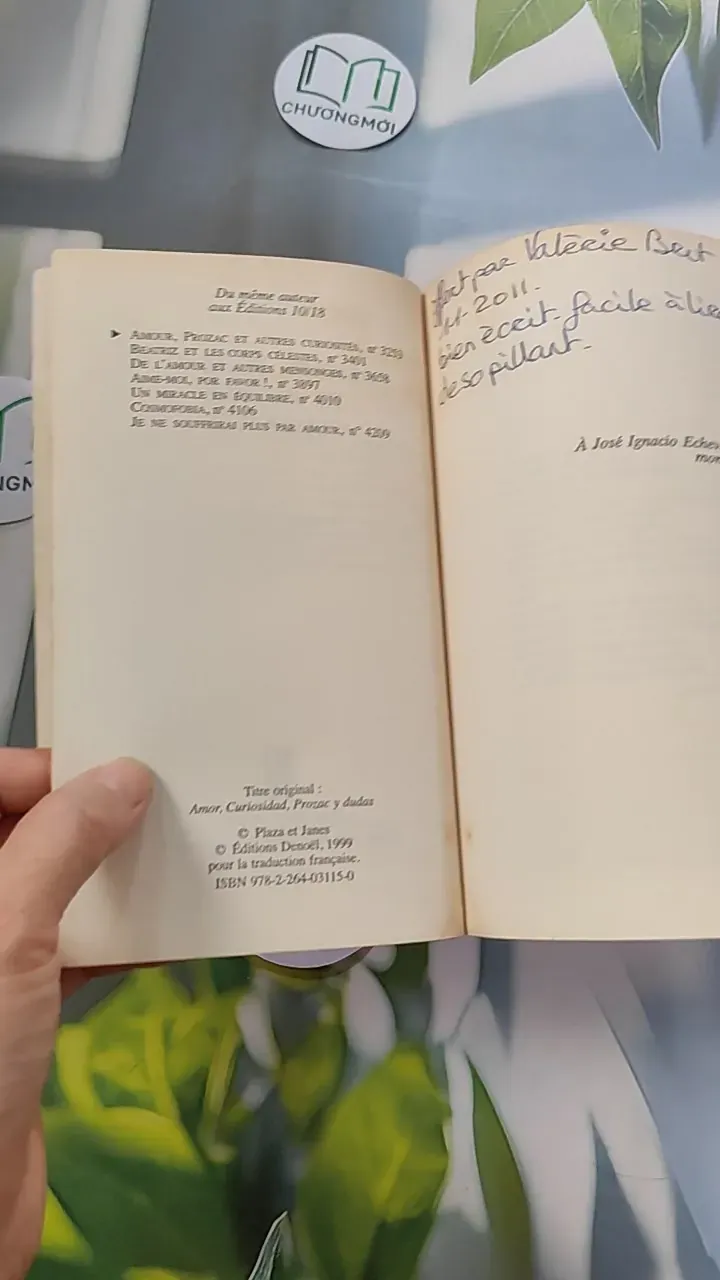 CHƯƠNGMỚI
Du même auteur
aux Éditions 10/18
➤ AMOUR, PROZAC ET AUTRES CURIOSITÉS, n° 3253
BEATRIZ ET LES CORPS CÉLESTES, n° 3401
DE L'AMOUR ET AUTRES MENSONGES, n° 3658
AIME-MOI, POR FAVOR !, n° 3897
UN MIRACLE EN ÉQUILIBRE, n° 4010
COSMOFOBIA, n° 4106
JE NE SOUFFRIRAI PLUS PAR AMOUR, n° 4209
Titre original :
Amor, Curiosidad, Prozac y dudas
© Plaza et Janes
© Éditions Denoël, 1999
pour la traduction française.
ISBN 978-2-264-03115-0
par Valérie
2011.
bien écrit. facile à lire
desopillant.
À José Ignacio Eche
mon